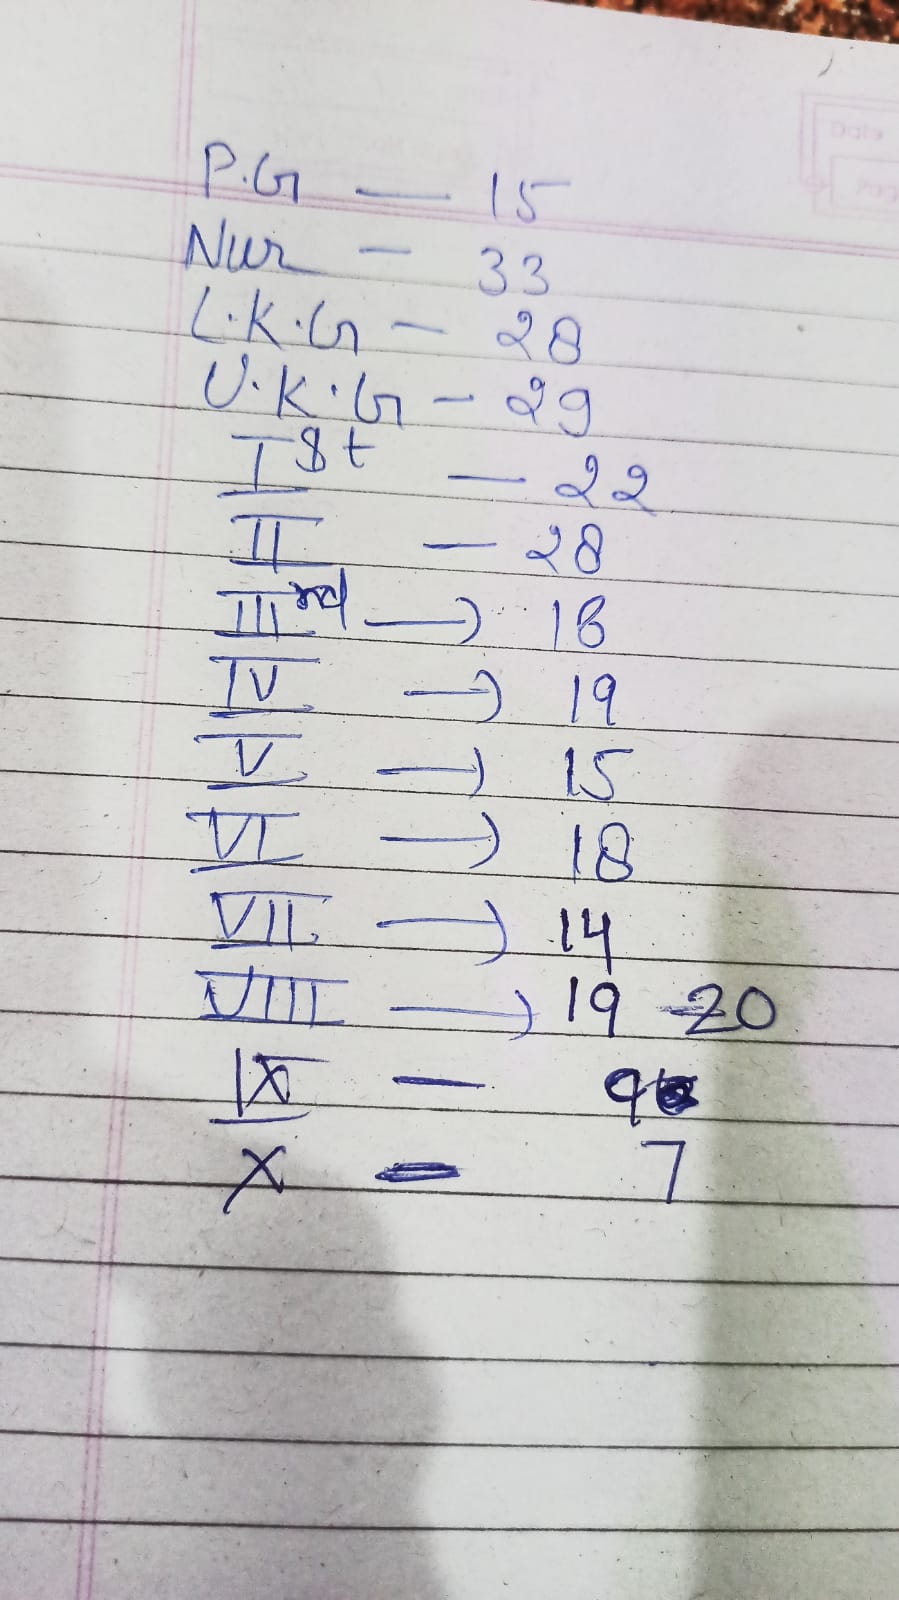 P.G — 15
Nur — 33
L.K.G — 28
U.K.G — 29
I st — 22
II — 28
III rd → 18
IV → 19
V → 15
VI → 18
VII → 14
VIII → 19 20
IX — 9
X — 7